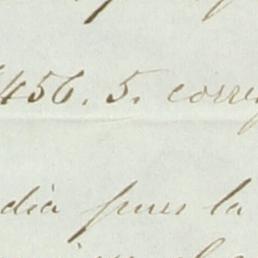 456. 5. corre
dia pues la